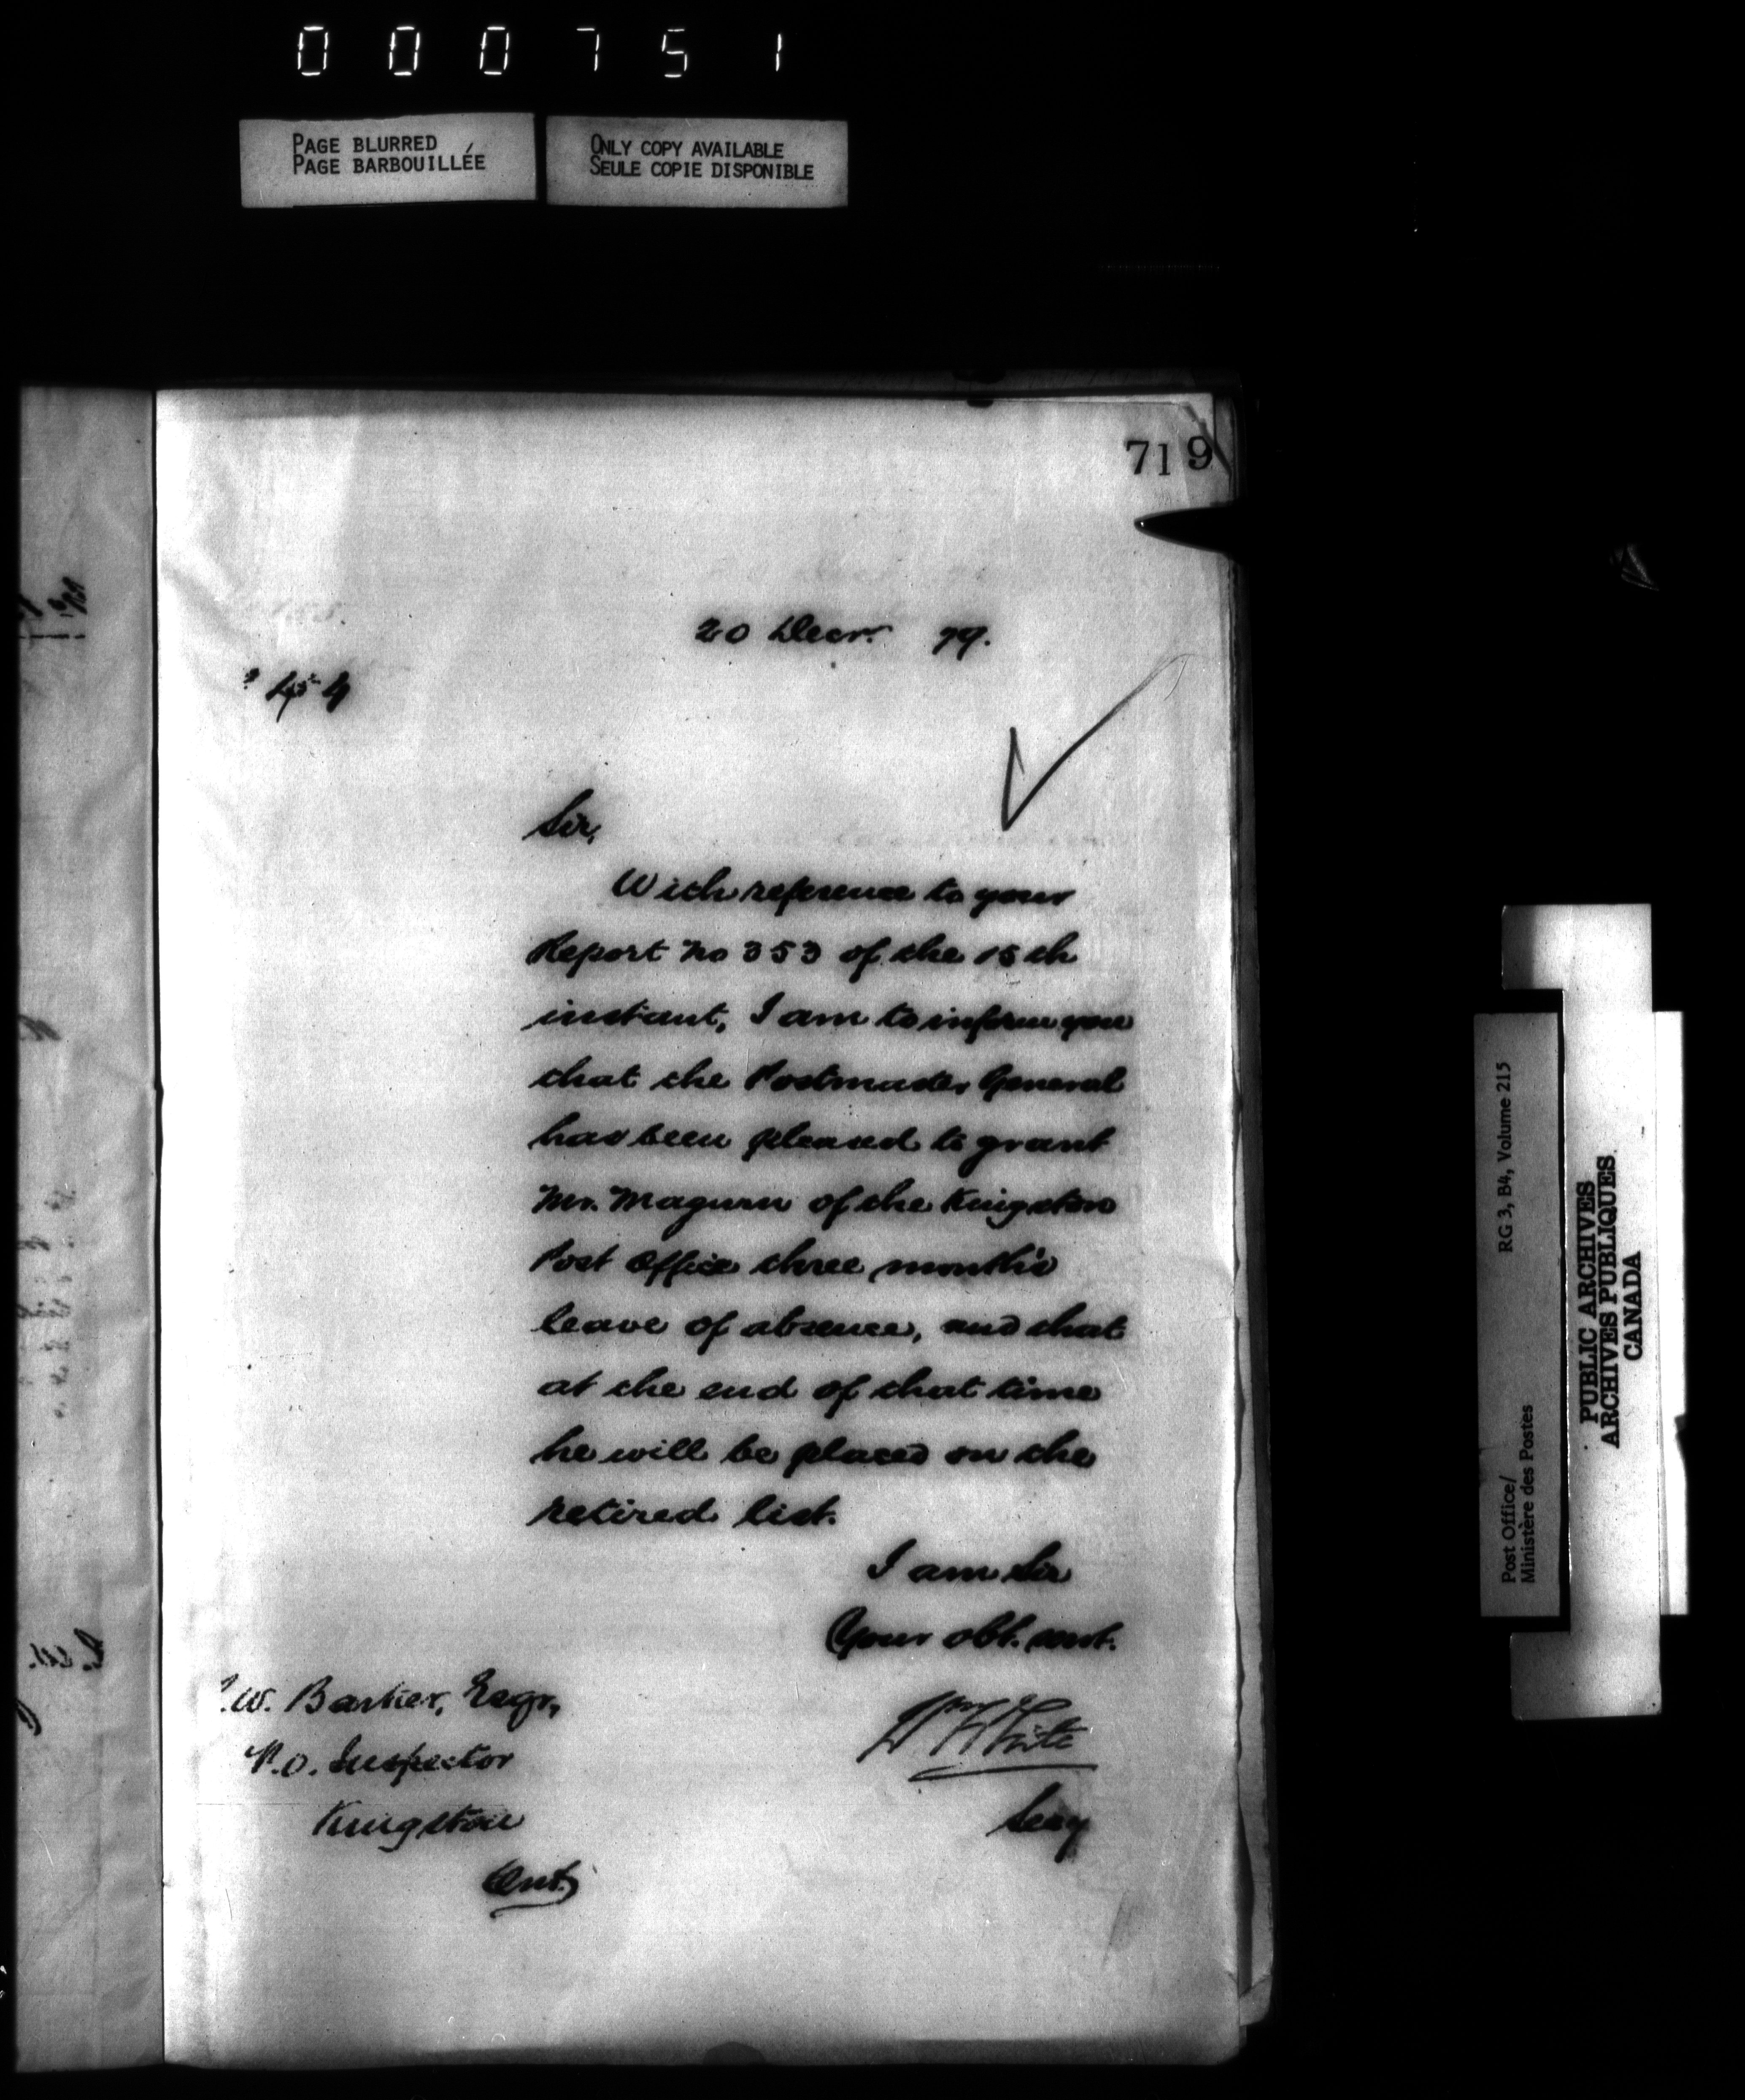 000751
PAGE BLURRED
PAGE BARBOUILLÉE
ONLY COPY AVAILABLE
SEULE COPIE DISPONIBLE
719
20 Decr. 79.
Sir,
With reference to your
Report No 353 of the 15th
instant, I am to inform you
that the Postmaster General
has been pleased to grant
Mr. Magurn of the Kingston
Post Office three month's
leave of absence, and that
at the end of that time
he will be placed on the
retired list.
I am Sir
Your obt. servt.
W White
Secy
.W. Barker, Esqr,
P.O. Inspector
Kingston
Ont.
Post Office/ RG 3, B4, Volume 215
Ministère des Postes
PUBLIC ARCHIVES
ARCHIVES PUBLIQUES
CANADA